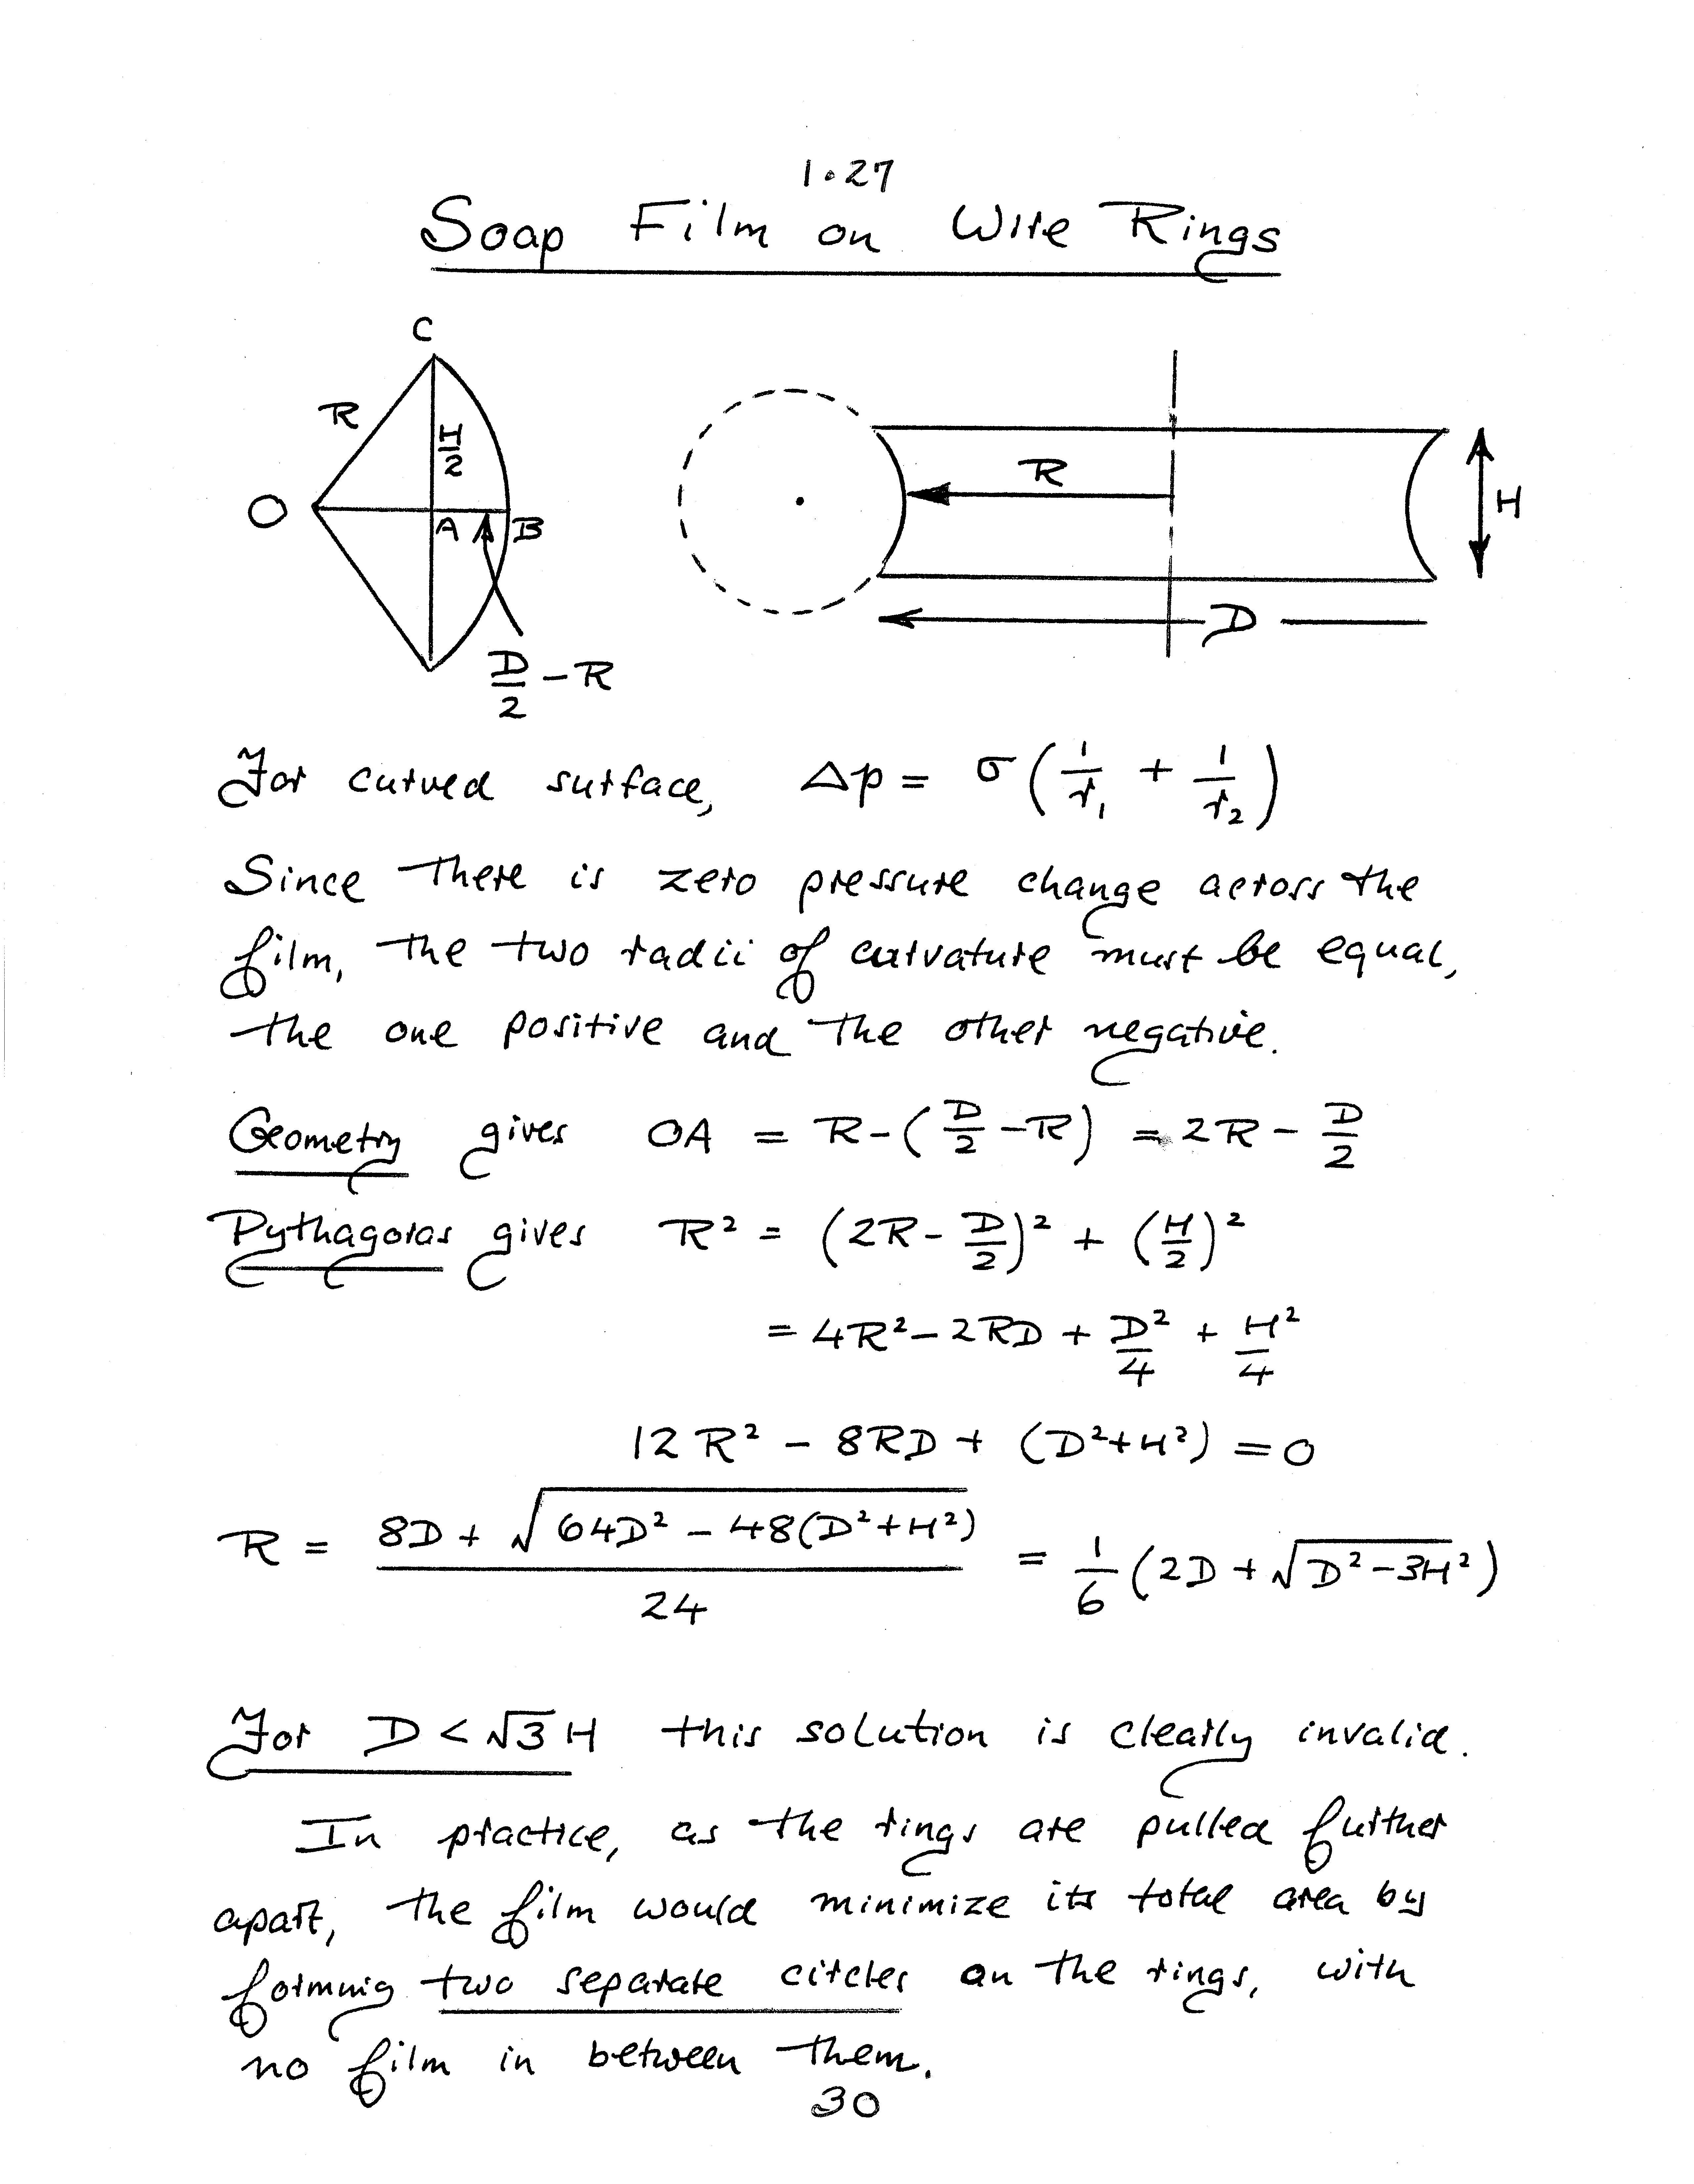 1.27
Soap Film on Wire Rings
C
R
H/2
O
A
B
D/2 - R
R
H
D
For curved surface, Δp = σ(1/r₁ + 1/r₂)
Since there is zero pressure change across the
film, the two radii of curvature must be equal,
the one positive and the other negative.
Geometry gives OA = R - (D/2 - R) = 2R - D/2
Pythagoras gives R² = (2R - D/2)² + (H/2)²
= 4R² - 2RD + D²/4 + H²/4
12R² - 8RD + (D²+H²) = 0
R = (8D + √(64D² - 48(D²+H²)))/24 = 1/6 (2D + √(D² - 3H²))
For D < √3 H this solution is clearly invalid.
In practice, as the rings are pulled further
apart, the film would minimize its total area by
forming two separate circles on the rings, with
no film in between them.
30